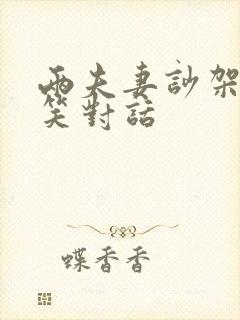 兩夫妻訬架
笑對話
蝶香香